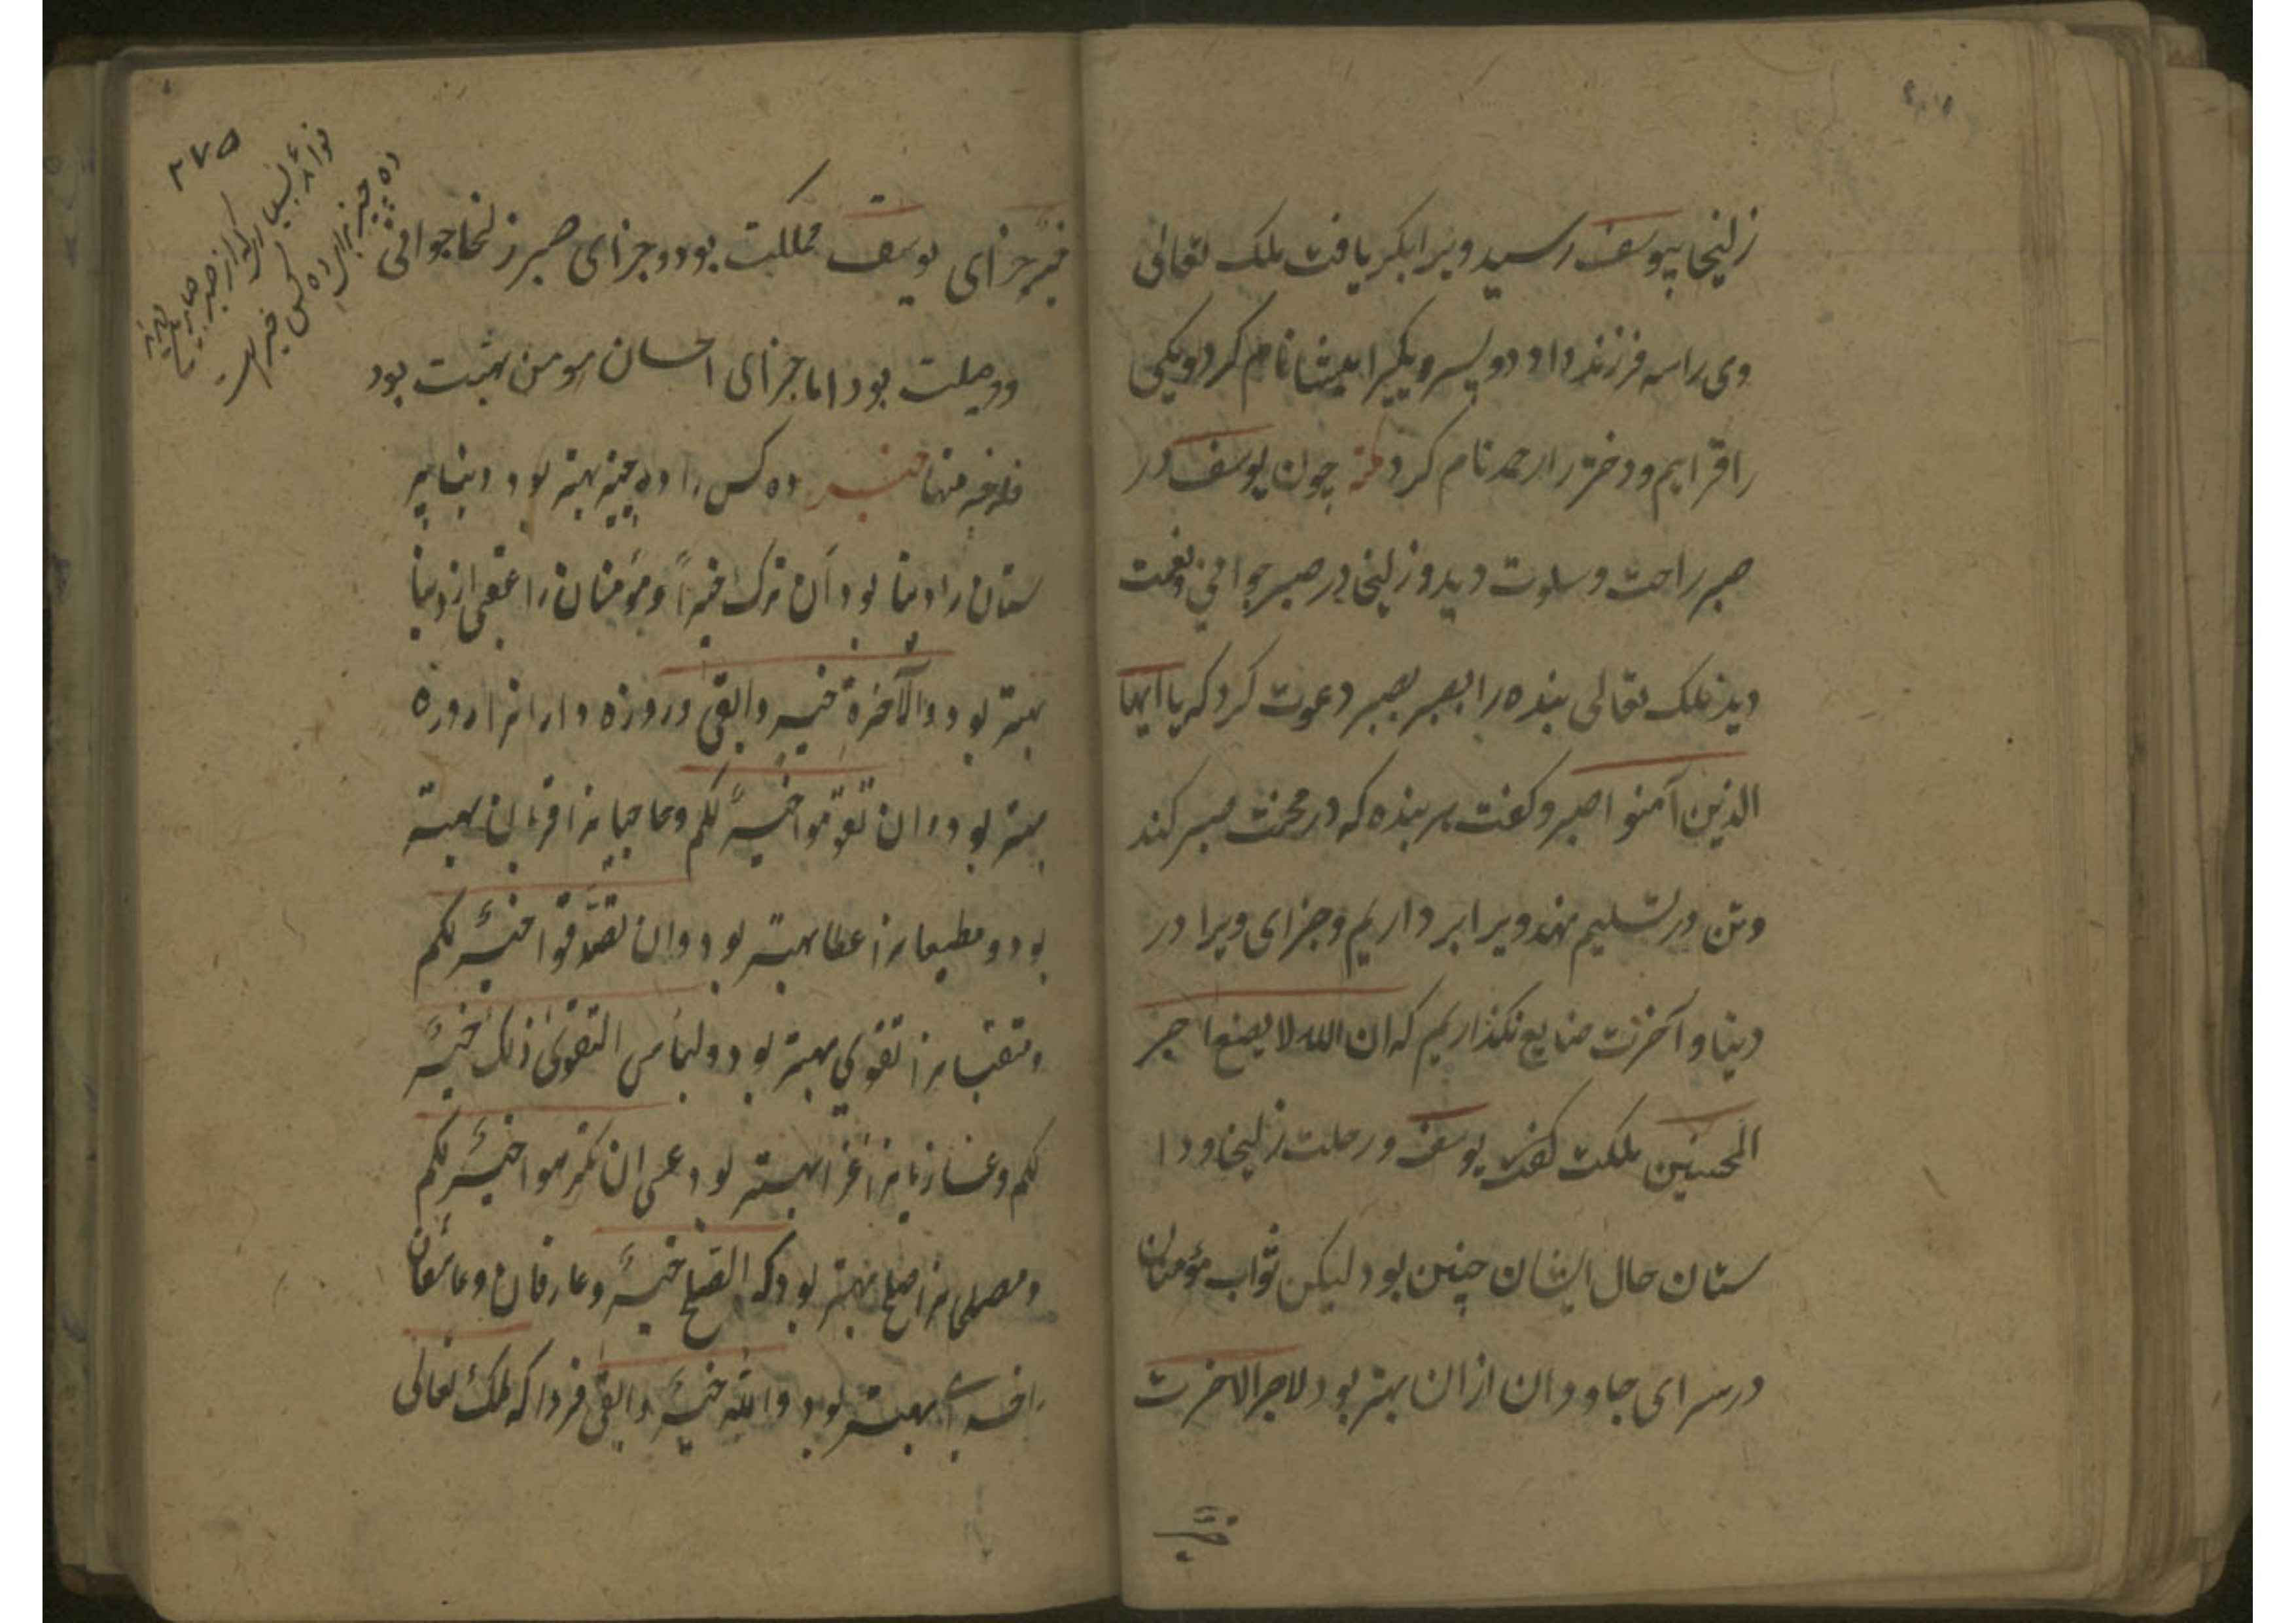 زلیخا بیوسف رسید ویرا بکر یافت ملک تعالی
وی را سه فرزند داد دو پسر و یکیرا میشا نام کرد و یکی
را افرایم و دختر را رحمه نام کرد چون یوسف در
صبر راحت و سلوت دید و زلیخا در صبر جوانی و نعمت
دید ملک تعالی بنده را بصبر دعوت کرد که یا ایها
الذین آمنوا اصبروا کفت هر بنده که در محنت صبر کند
و تن در تسلیم نهد ویرا بر داریم و جزای ویرا در
دنیا و آخرت ضایع نکذاریم که ان الله لا یضیع اجر
المحسنین ملکت یوسف و رحلت زلیخا و دا
ستان حال ایشان چنین بود لیکن ثواب مؤمنان
در سرای جاودان ازان بهتر بود لاجر الاخرت
خیر
۲۷۵
ده چیز برای ده کس خیر است
خیر جزای یوسف مملکت بود و جزای صبر زلیخا جوانی
و وصلت بود اما جزای احسان مومن بهشت بود
فله خیر منها خبر ده کس را ده چیز بهتر بود دنیا پر
ستان را دنیا بود ان ترک خیراً و مؤمنان را عقبی از دنیا
بهتر بود و الآخرة خیر وابقی و روزه دارانرا روزه
بهتر بود و ان تصوموا خیر لکم و حاجیانرا قربان بهتر
بود و مطیعانرا عطا بهتر بود و ان تصدقوا خیر لکم
و متقیانرا تقوی بهتر بود و لباس التقوی ذلک خیر
لکم و غازیانرا غزا بهتر بود عسی ان تکرهوا خیر لکم
و مصلحانرا صلح بهتر بود که الصلح خیر و عارفان و عاشقان
را خدای بهتر بود والله خیر وابقی فردا که ملک تعالی